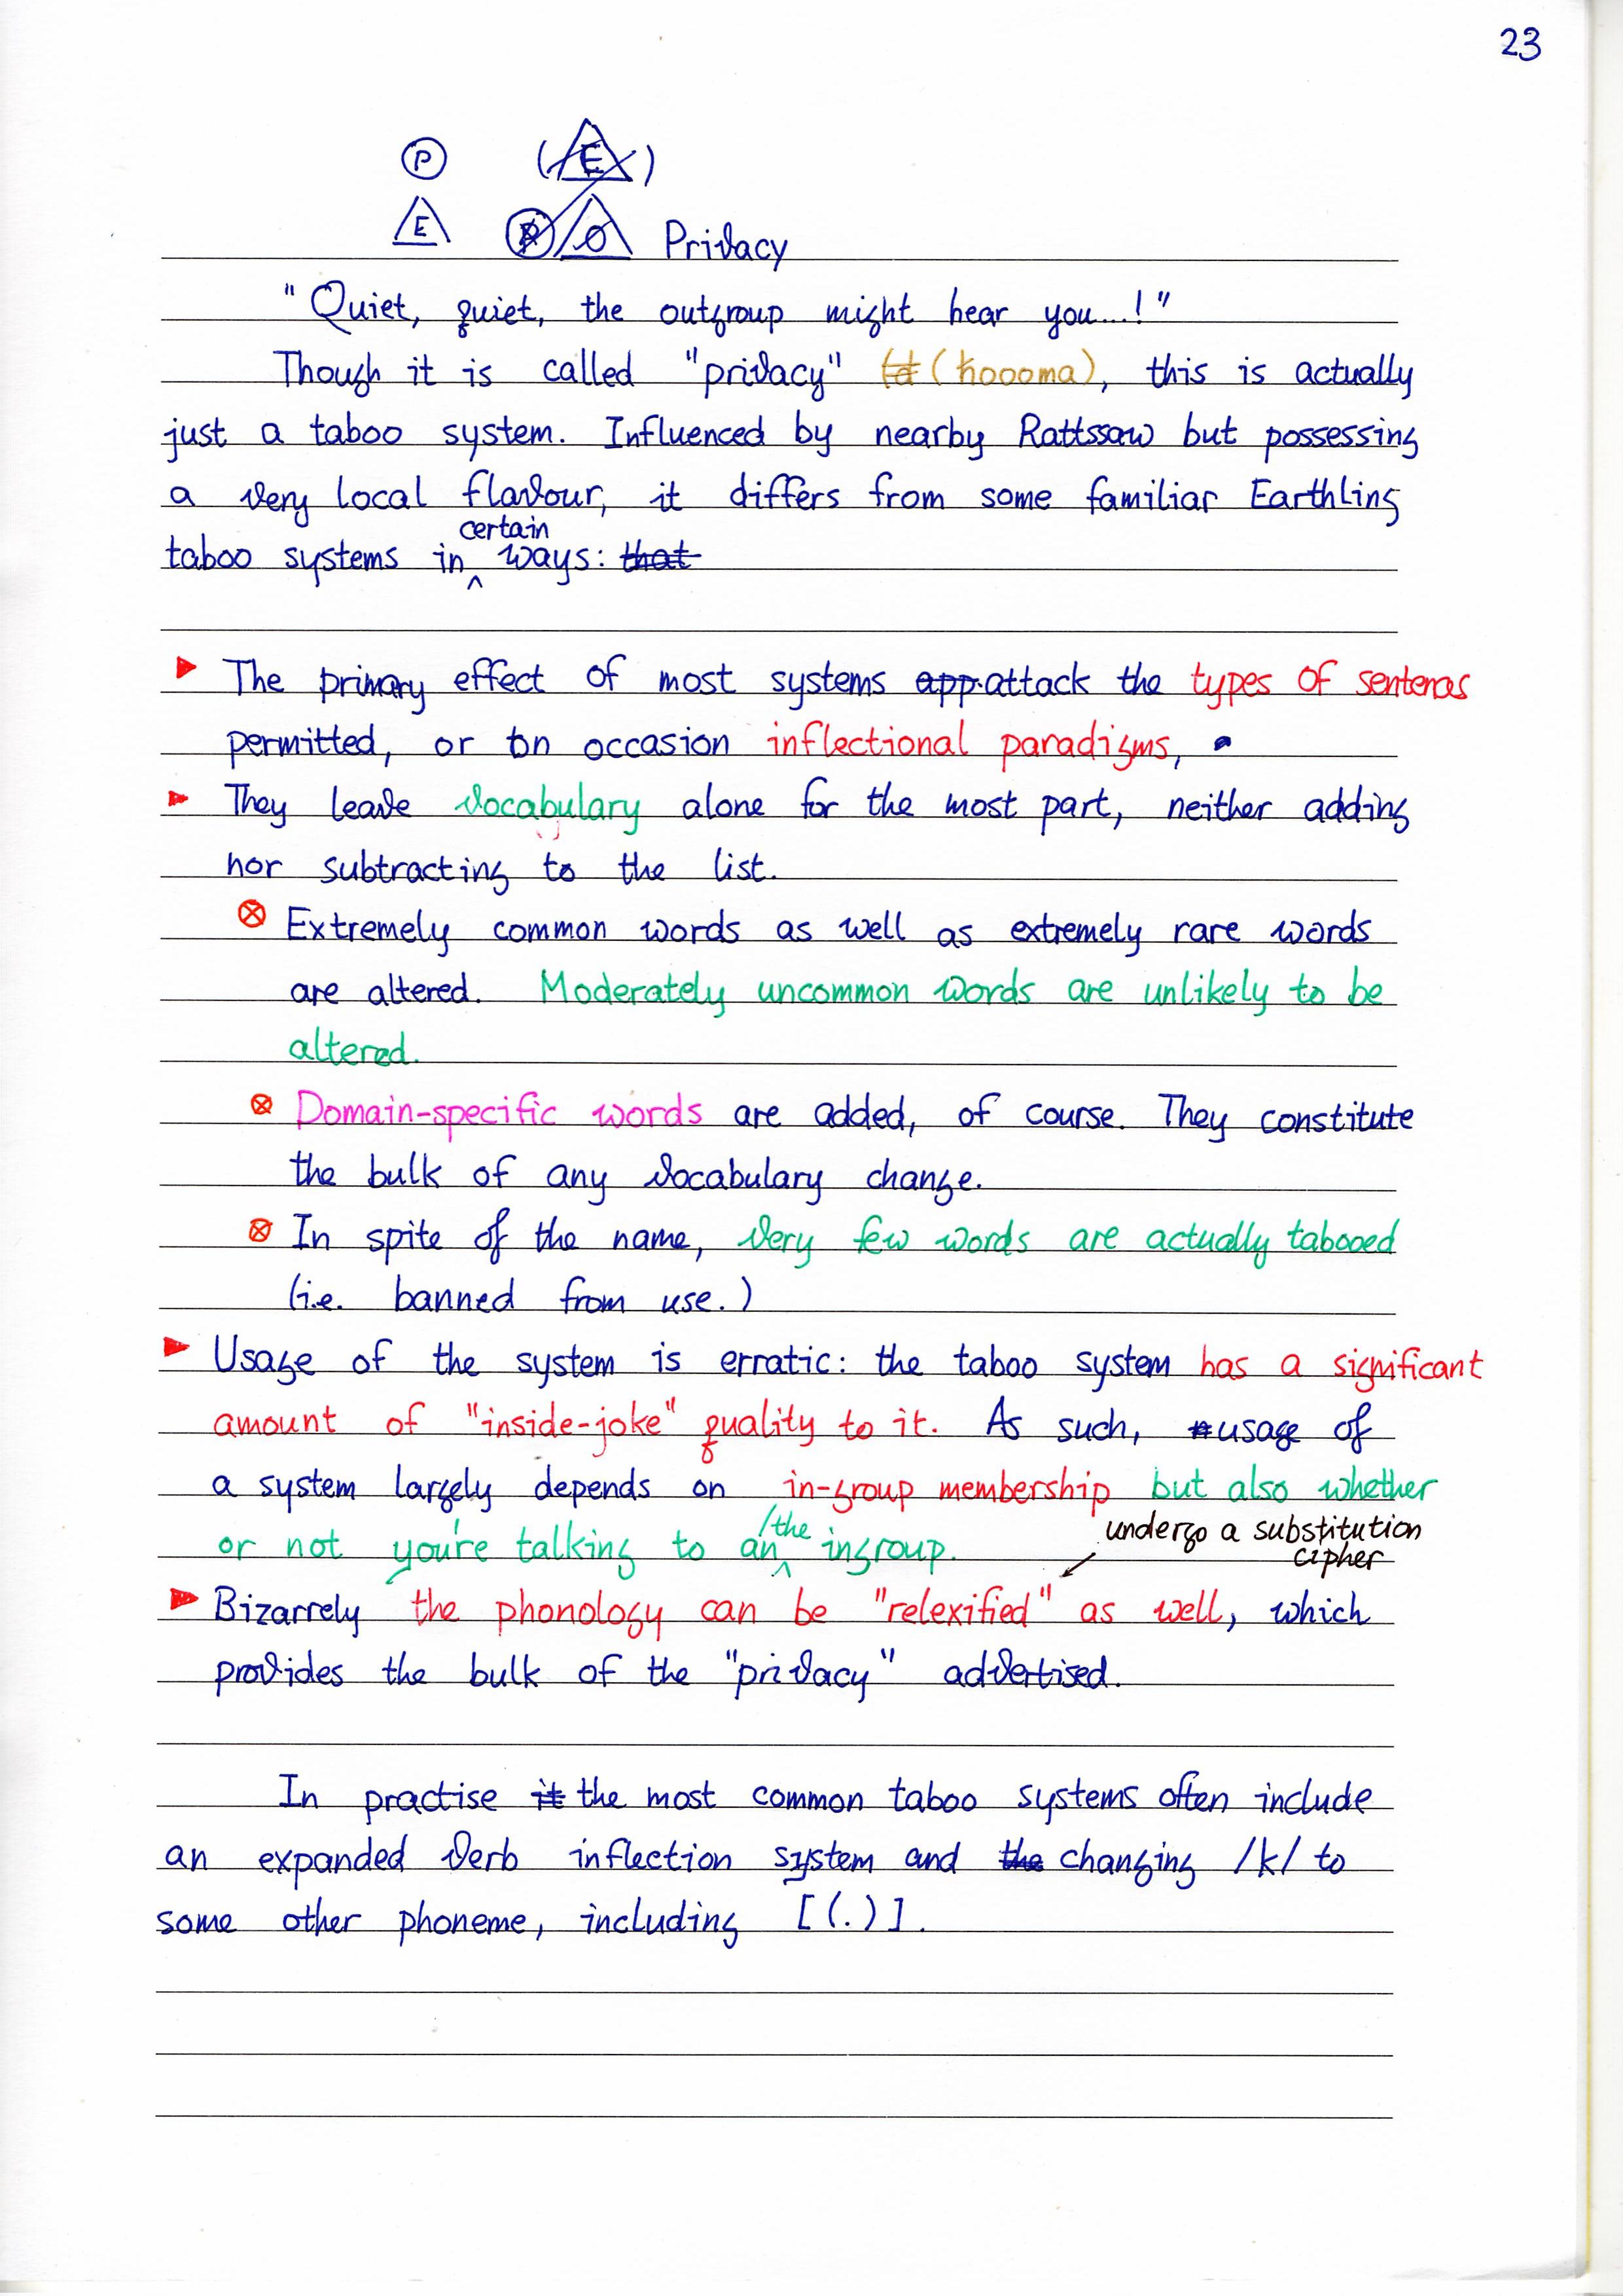 23
P (E)
E Privacy
"Quiet, quiet, the outgroup might hear you...!"
Though it is called "privacy" (hoooma), this is actually
just a taboo system. Influenced by nearby Rattssaw but possessing
a very local flavour, it differs from some familiar Earthling
certain
taboo systems in ^ ways: that
▶ The primary effect of most systems app. attack the types of sentences
permitted, or on occasion inflectional paradigms,
▶ They leave vocabulary alone for the most part, neither adding
nor subtracting to the list.
⊗ Extremely common words as well as extremely rare words
are altered. Moderately uncommon words are unlikely to be
altered.
⊗ Domain-specific words are added, of course. They constitute
the bulk of any vocabulary change.
⊗ In spite of the name, very few words are actually tabooed
(i.e. banned from use.)
▶ Usage of the system is erratic: the taboo system has a significant
amount of "inside-joke" quality to it. As such, usage of
a system largely depends on in-group membership but also whether
/the
or not you're talking to an ^ ingroup.
undergo a substitution
cipher
▶ Bizarrely the phonology can be "relexified" as well, which
provides the bulk of the "privacy" advertised.
In practise it the most common taboo systems often include
an expanded verb inflection system and the changing /k/ to
some other phoneme, including [(.)].